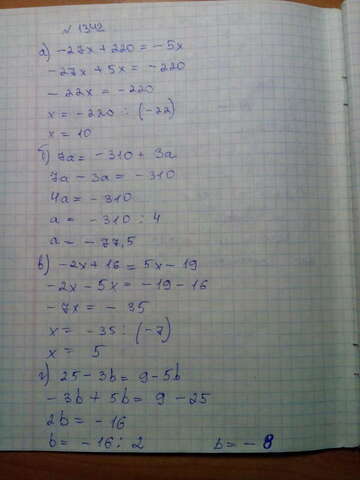 № 1342
а) -27x + 220 = -5x
-27x + 5x = -220
-22x = -220
x = -220 : (-22)
x = 10
б) 7a = -310 + 3a
7a - 3a = -310
4a = -310
a = -310 : 4
a = -77,5
в) -2x + 16 = 5x - 19
-2x - 5x = -19 - 16
-7x = -35
x = -35 : (-7)
x = 5
г) 25 - 3b = 9 - 5b
-3b + 5b = 9 - 25
2b = -16
b = -16 : 2 b = -8